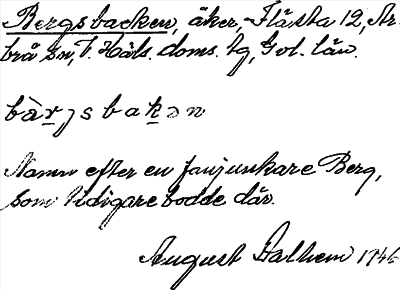 Bergsbacken, åker, Flästa 12, Ar-
brå sn, V. Häls. doms. tg, Gvl. län.
bæ̀rjsbakən
Namn efter en fanjunkare Berg,
som tidigare bodde där.
August Dalhem 1946